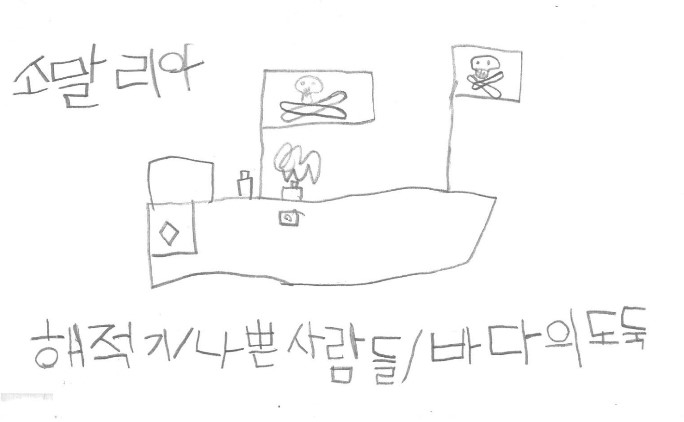 소말리아
해적기/나쁜사람들/바다의도둑